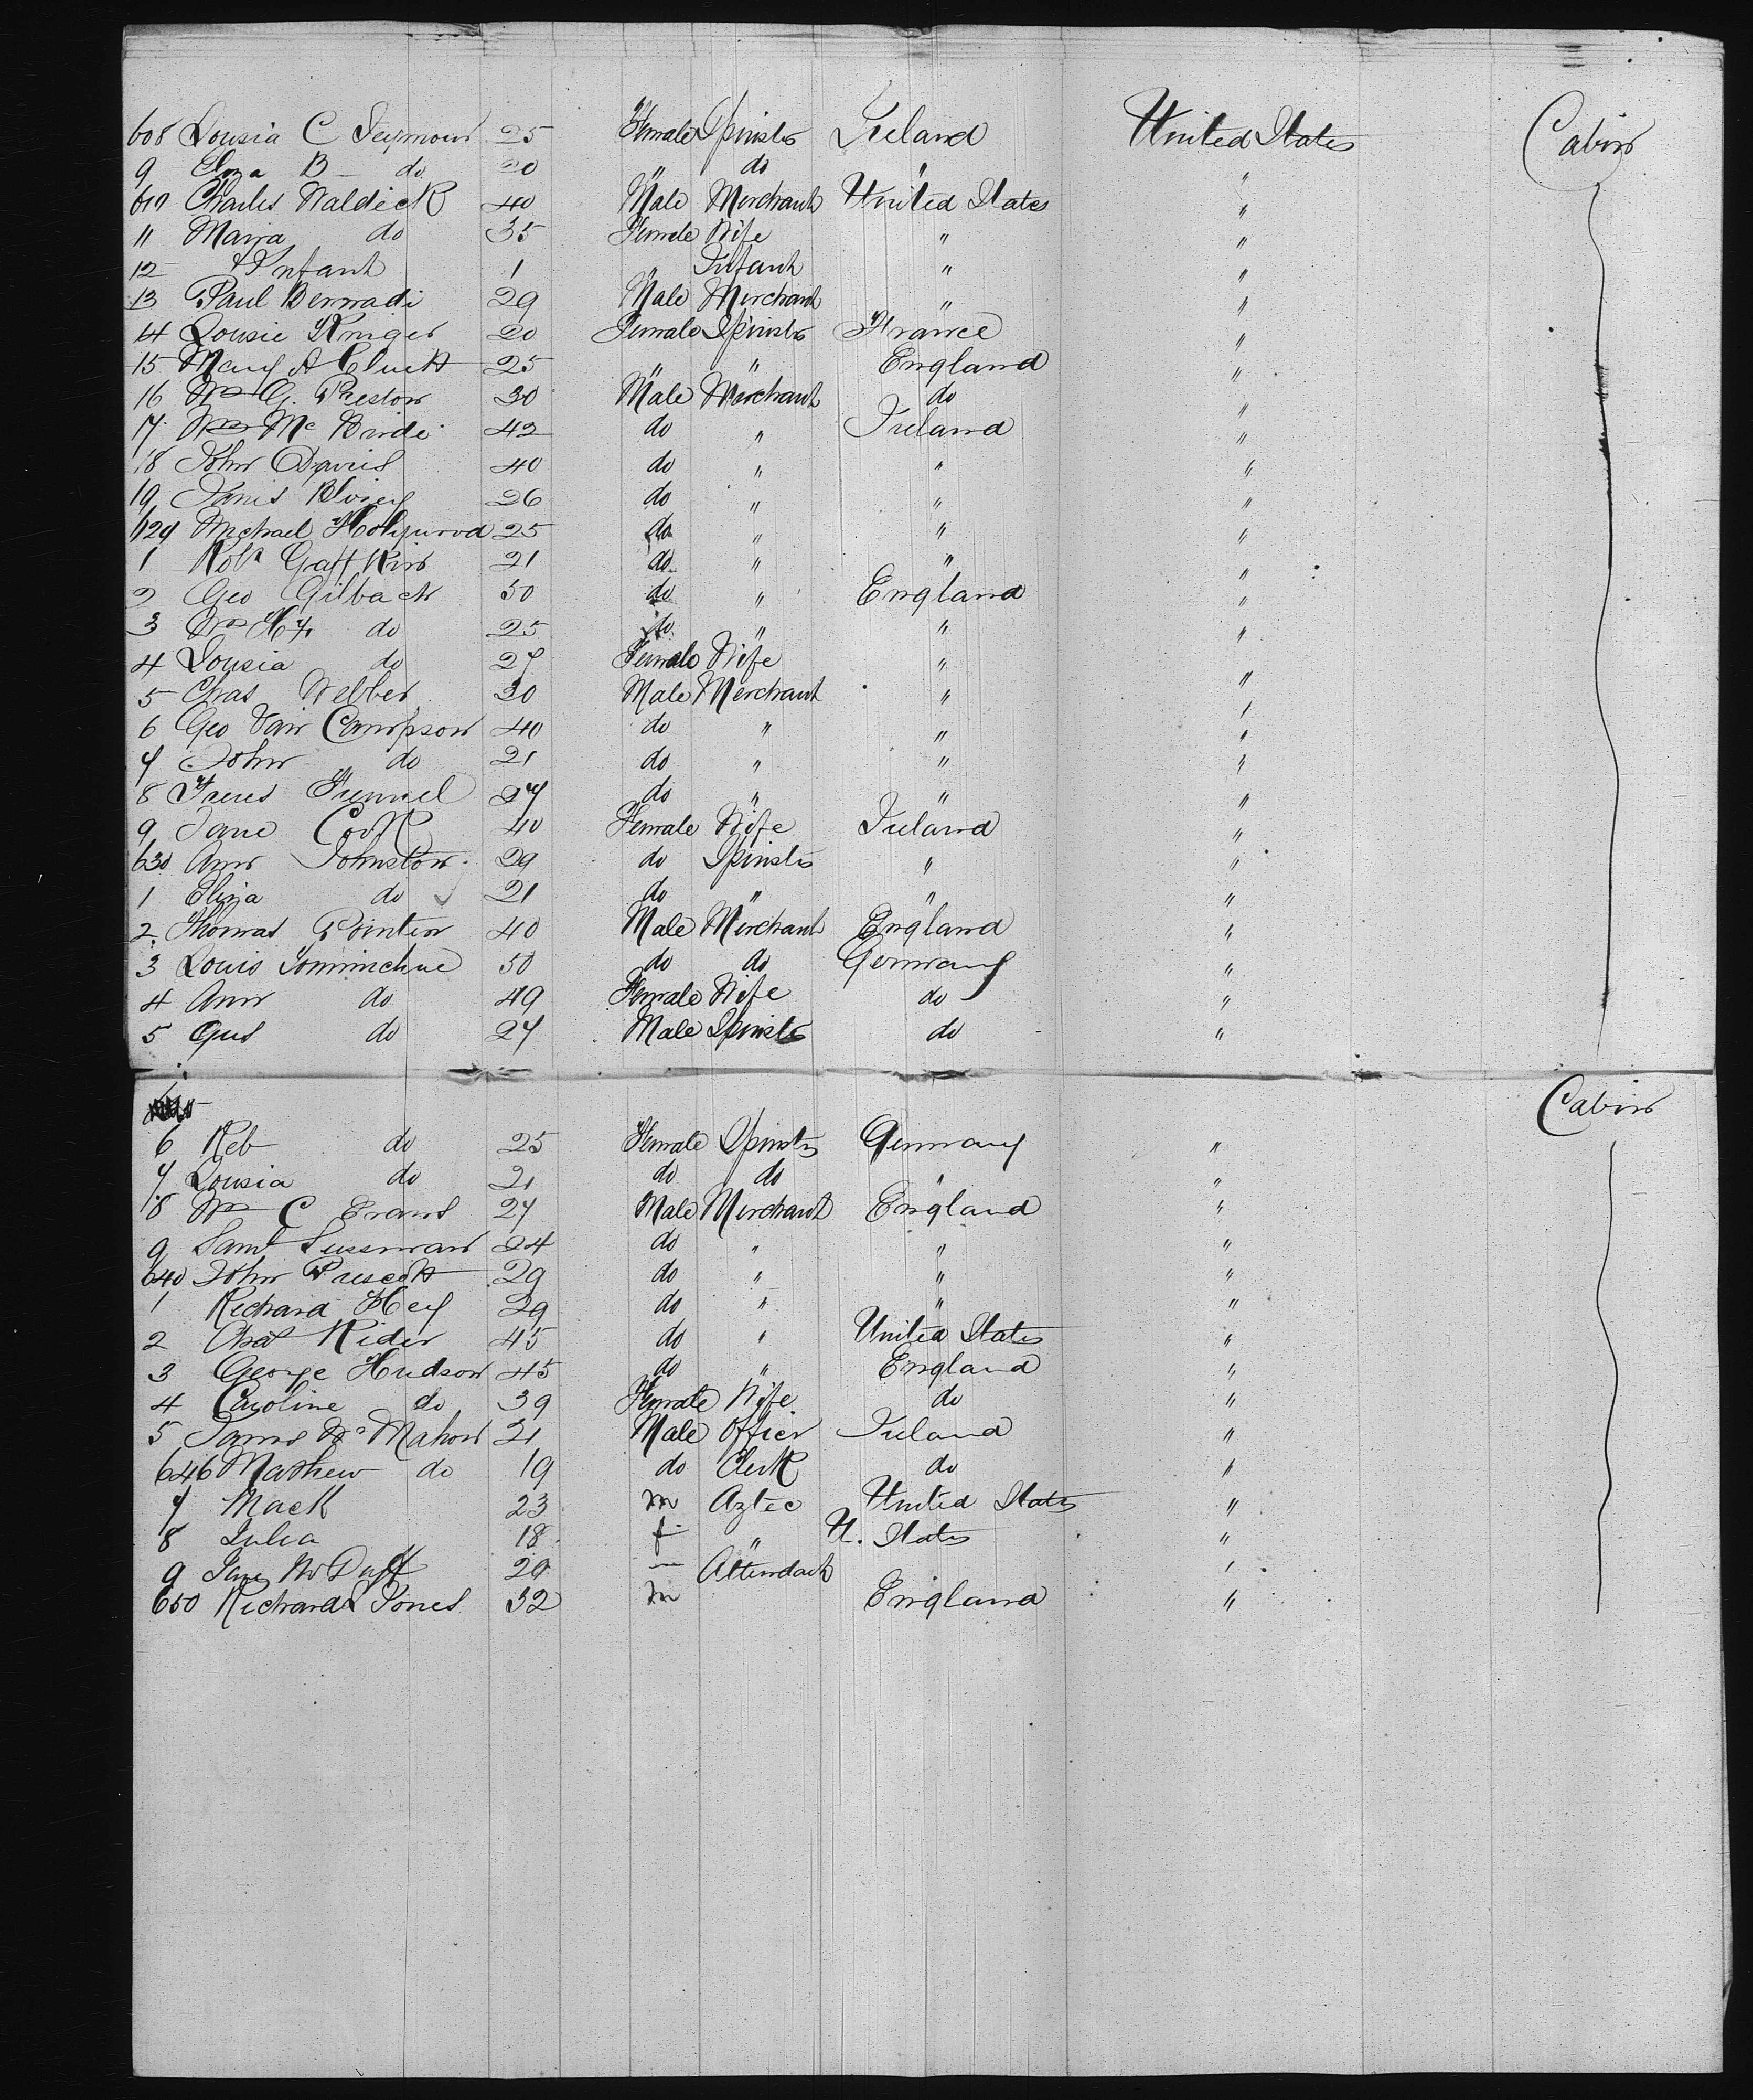 608 Lousia C Seymour 25 Female Spinster Ireland United States Cabin
9 Eliza B do 20 " do " "
610 Charles Waldeck 40 Male Merchant United States "
11 Maria do 35 Female Wife " "
12 Infant 1 " Infant " "
13 Paul Bernadi 29 Male Merchant " "
14 Lousie Kruger 20 Female Spinster France "
15 Mary A Cluett 25 " " England "
16 Wm G. Preston 30 Male Merchant do "
17 Wm Mc Birdi 42 do " Ireland "
18 John Davis 40 do " " "
19 26 do " " "
620 Michael Holywood 25 do " " "
1 Robt Gaffkin 21 do " " "
2 Geo Gilback 50 do " England "
3 Wm Hy do 25 do " " "
4 Lousia do 27 Female Wife " "
5 Chas Webber 30 Male Merchant " "
6 Geo Vair Campson 40 do " " "
7 John do 21 do " " "
8 27 do " " "
9 Jane Cook 40 Female Wife Ireland "
630 Ann Johnston 29 do Spinster " "
1 Eliza do 21 do " " "
2 Thomas Pointen 40 Male Merchant England "
3 Louis 50 do do Germany "
4 Ann do 49 Female Wife do "
5 Gus do 27 Male Spinster do "
Cabin
6 Reb do 25 Female Spinster Germany "
7 Lousia do 21 do do " "
8 Wm C Evans 27 Male Merchant England "
9 Saml Sussman 24 do " " "
640 John Prescott 29 do " " "
1 Richard Hey 29 do " " "
2 Chas Rider 45 do " United States "
3 George Hudson 45 do " England "
4 Caroline do 39 Female Wife do "
5 James Mc Mahon 21 Male Officer Ireland "
646 Mathew do 19 do Clerk do "
7 Mack 23 m Aztec United States "
8 Julia 18 f " U. States "
9 Jane McDuff 29 — Attendant "
650 Richard Jones 32 m England "